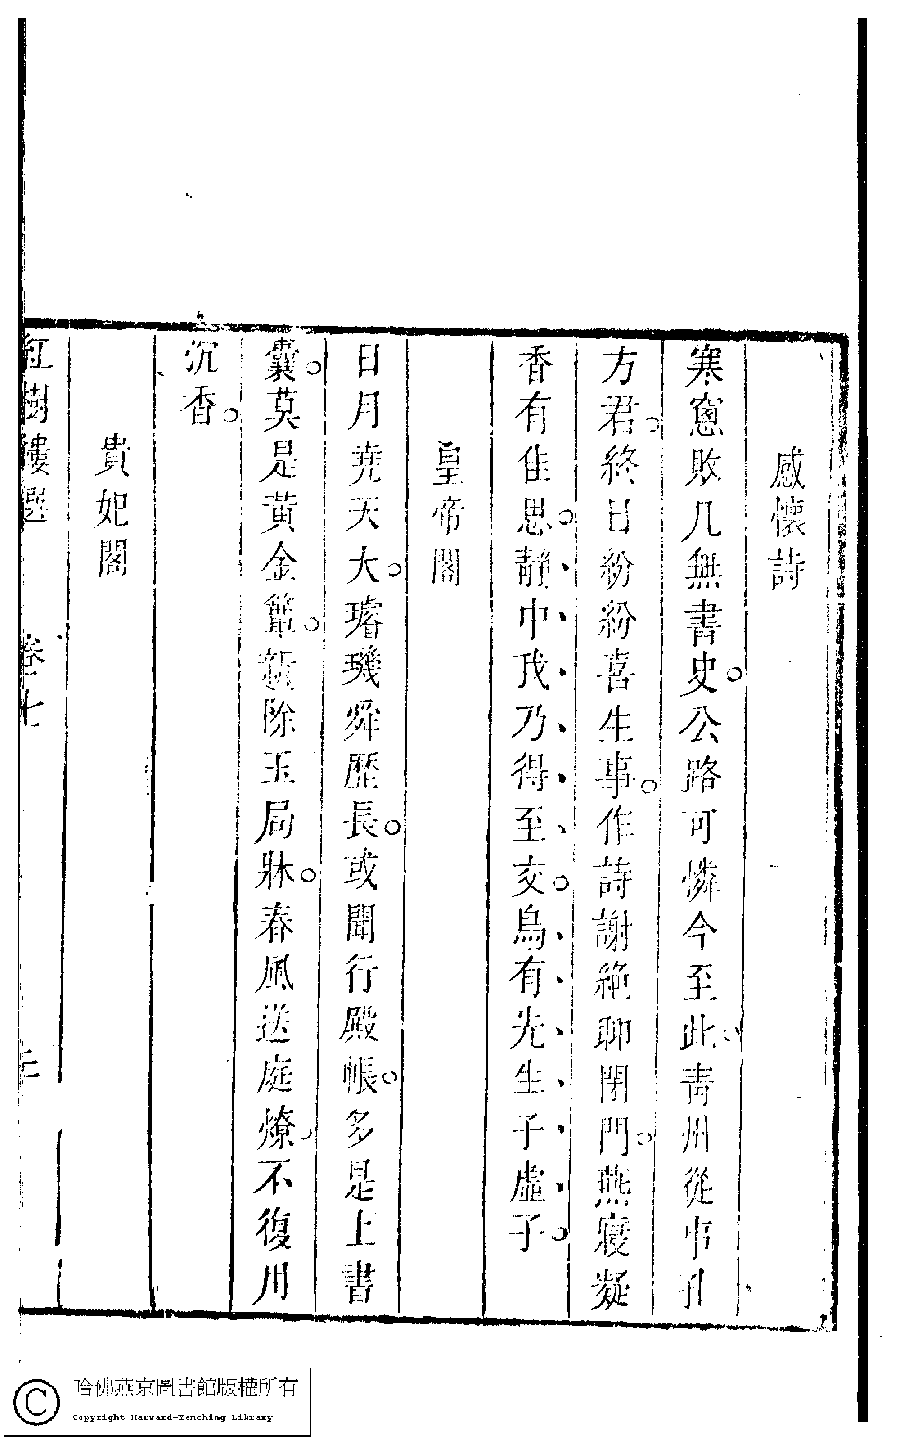 感懷詩
寒窻敗几無書史公路可憐今至此青州從事孔
方君終日紛紛喜生事作詩謝絶聊閉門燕寢凝
香有佳思靜中我乃得至交烏有先生子虛子
皇帝閣
日月堯天大璿璣舜歷長或聞行殿帳多是上書
囊莫是黃金簟新除玉局牀春風送庭燎不復用
沉香
貴妃閣
紅樹樓選 卷七
哈佛燕京圖書館版權所有
Copyright Harvard-Yenching Library